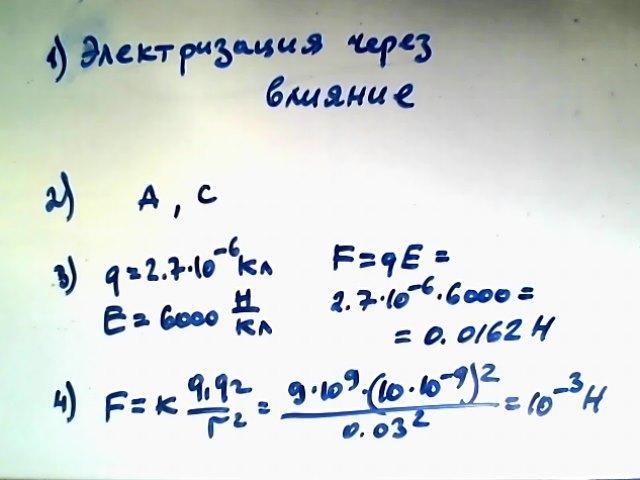 1) Электризация через
влияние
2) A, C
3) q = 2.7·10⁻⁶ кл F = qE =
E = 6000 Н/кл 2.7·10⁻⁶·6000 =
= 0.0162 Н
4) F = k q₁q₂/r² = 9·10⁹·(10·10⁻⁹)²/0.03² = 10⁻³ Н